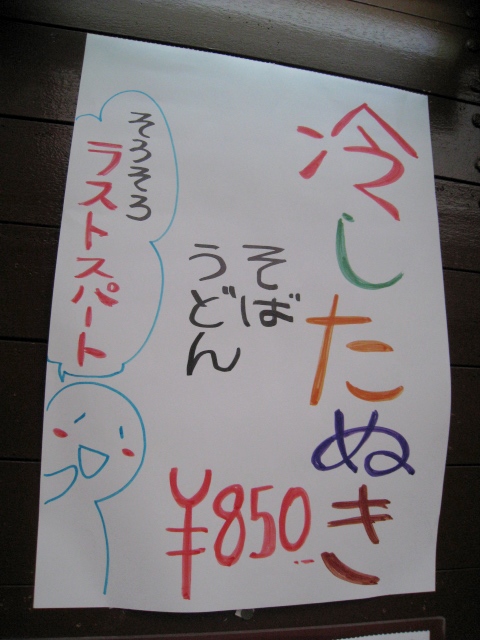 冷したぬき
そば
うどん
¥850
そろそろ
ラストスパート